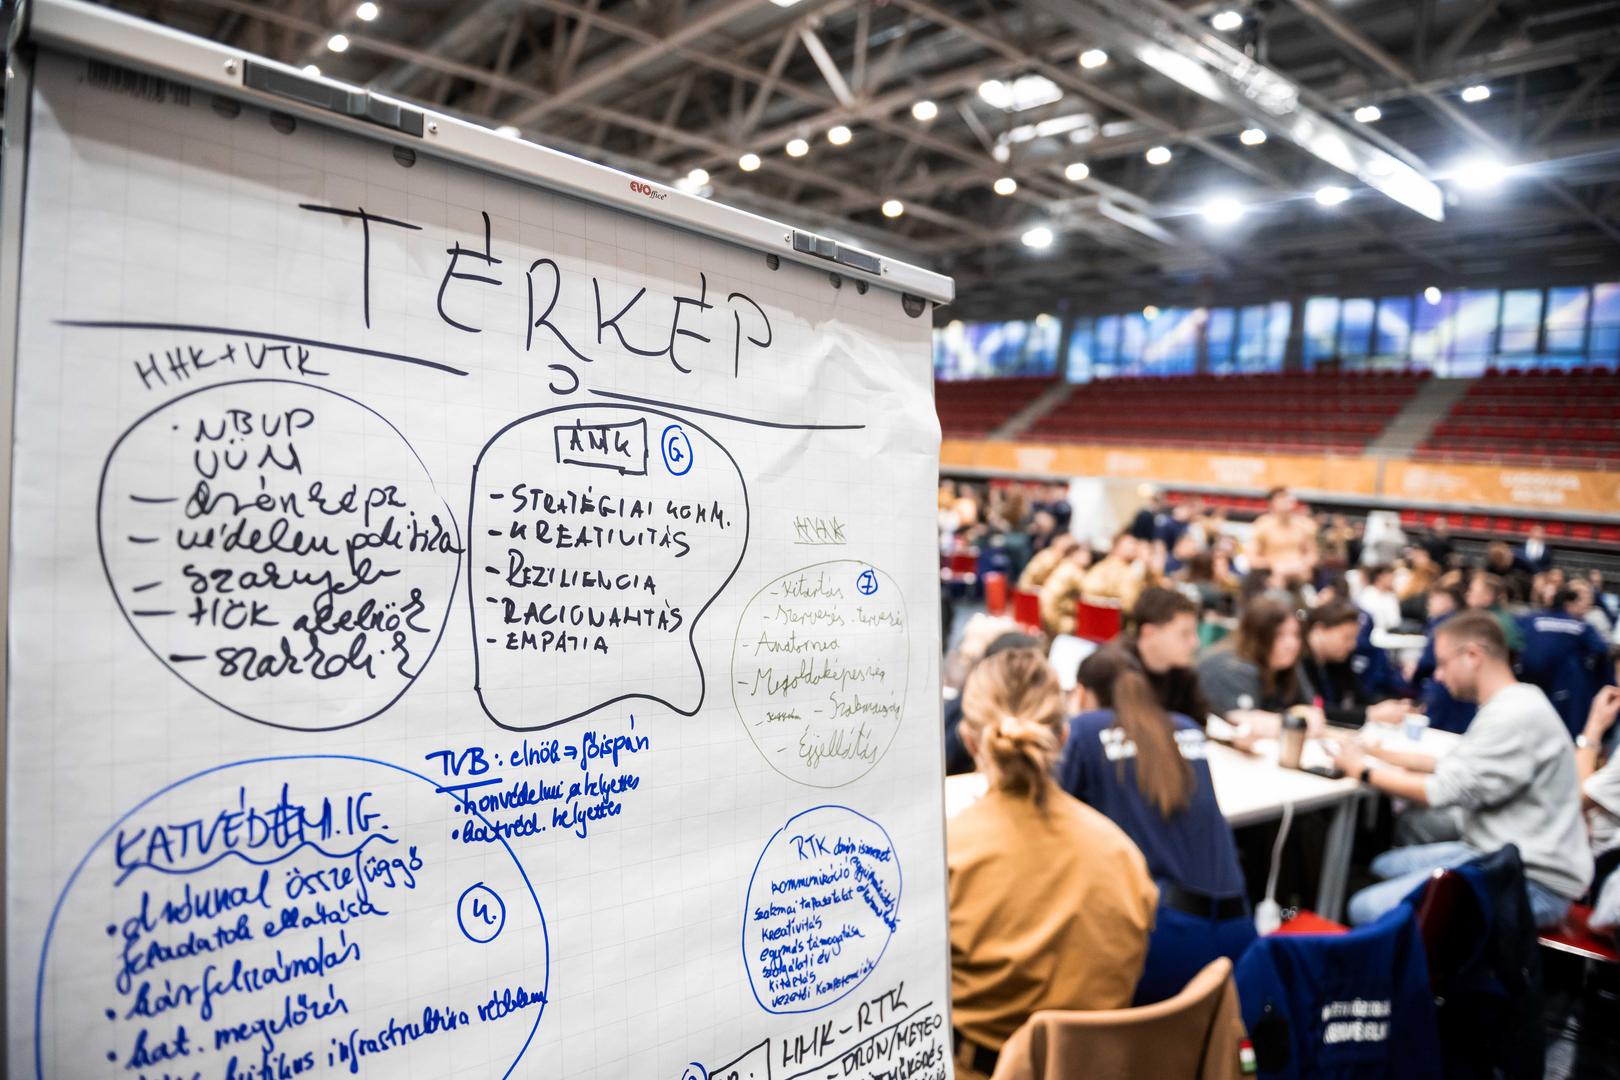 EVOffice
TÉRKÉP
HHK+VTK
NBUP
ÜÜM
- drónképz.
- védelem politika
- HÖK alelnök
ÁNTK
6
- STRATÉGIAI KOMM.
- KREATIVITÁS
- REZILIENCIA
- RACIONALITÁS
- EMPÁTIA
7
- Kitartás
- Anatómia
- Megoldóképesség
- Szakmaiság
- Éjjellátás
TVB: elnök ⇒ főispán
• honvédelmi helyettes
• katvéd. helyettes
KATVÉDELM.IG.
4.
• drónnal összefüggő
feladatok ellátása
• kárfelszámolás
• kat. megelőzés
kritikus infrastruktúra védelem
RTK drón ismeret
kommunikáció
szakmai tapasztalat
kreativitás
egymás támogatása
szolgálati év
kitartás
vezetői kompetenciák
HHK-RTK
- DRÓN/METEO